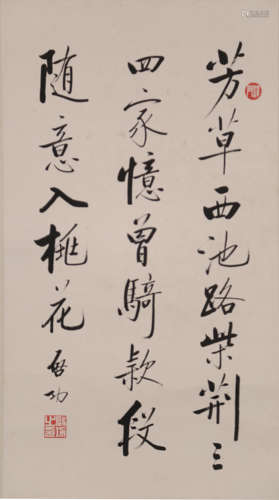 芳草西池路柴荆三
四家憶曾騎款段
随意入桃花
啓功